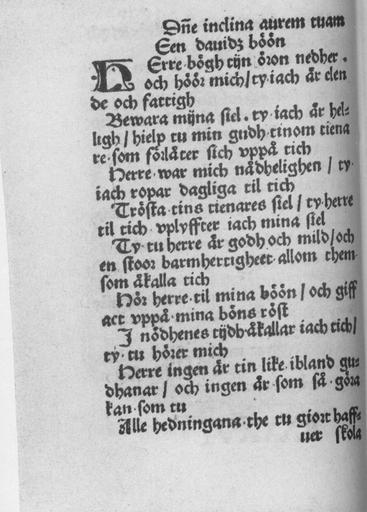 Dñe inclina aurem tuam
Een dauidz böön
HErre·bögh tijn öron nedher·
och höör mich/ty·iach är elen
de och fattigh
Bewara mijna siel·ty·iach är hel-
ligh/hielp tu min gudh·tinom tiena
re·som förlåter sich vppå tich
Herre·war mich nådhelighen/ty·
iach ropar dagliga til tich
Trösta·tins tienares siel/ty·herre
til tich·vplyffter iach mina siel
Ty·tu herre är godh och mild/och
en stoor barmhertigheet·allom them
som åkalla tich
Hör herre·til mina böön/och giff
act vppå·mina böns röst
J nödhenes tijdh·åkallar iach tich/
ty·tu hörer mich
Herre ingen är tin like·ibland gu-
dhanar/och ingen är·som så·göra
kan·som tu
Alle hedningana·the tu giort haff-
uer skola